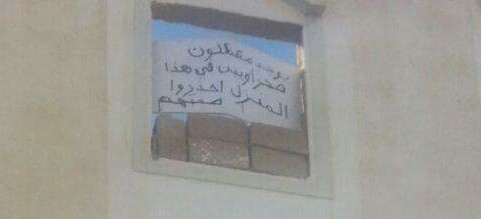 يوجد معطلون
صحراويين في هذا
المنزل احذروا
صمتهم